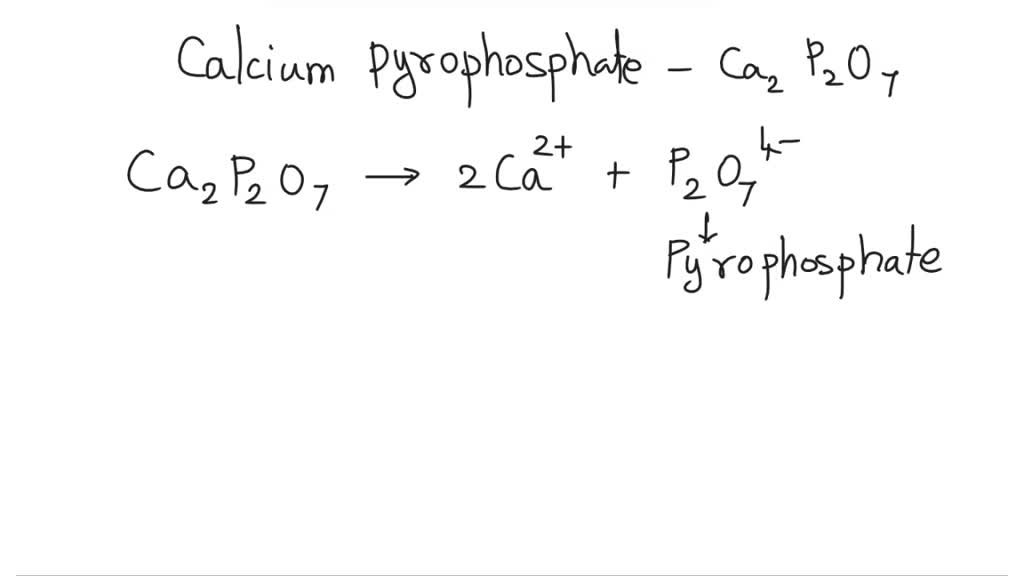 Calcium pyrophosphate - Ca₂ P₂O₇
Ca₂P₂O₇ → 2Ca²⁺ + P₂O₇⁴⁻
↓
Pyrophosphate